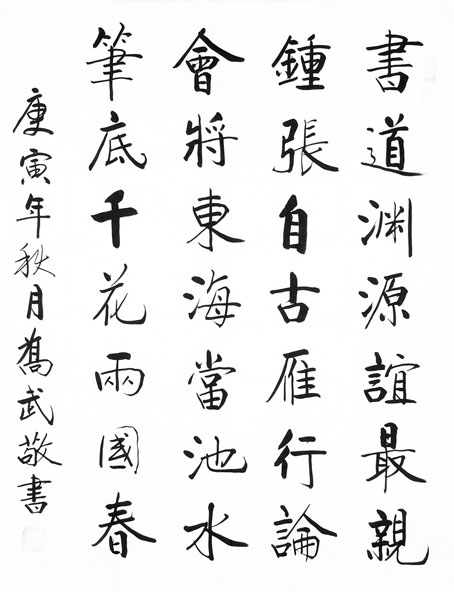 書道渊源誼最親
鍾張自古雁行論
會將東海當池水
筆底千花兩國春
庚寅年秋月喬武敬書